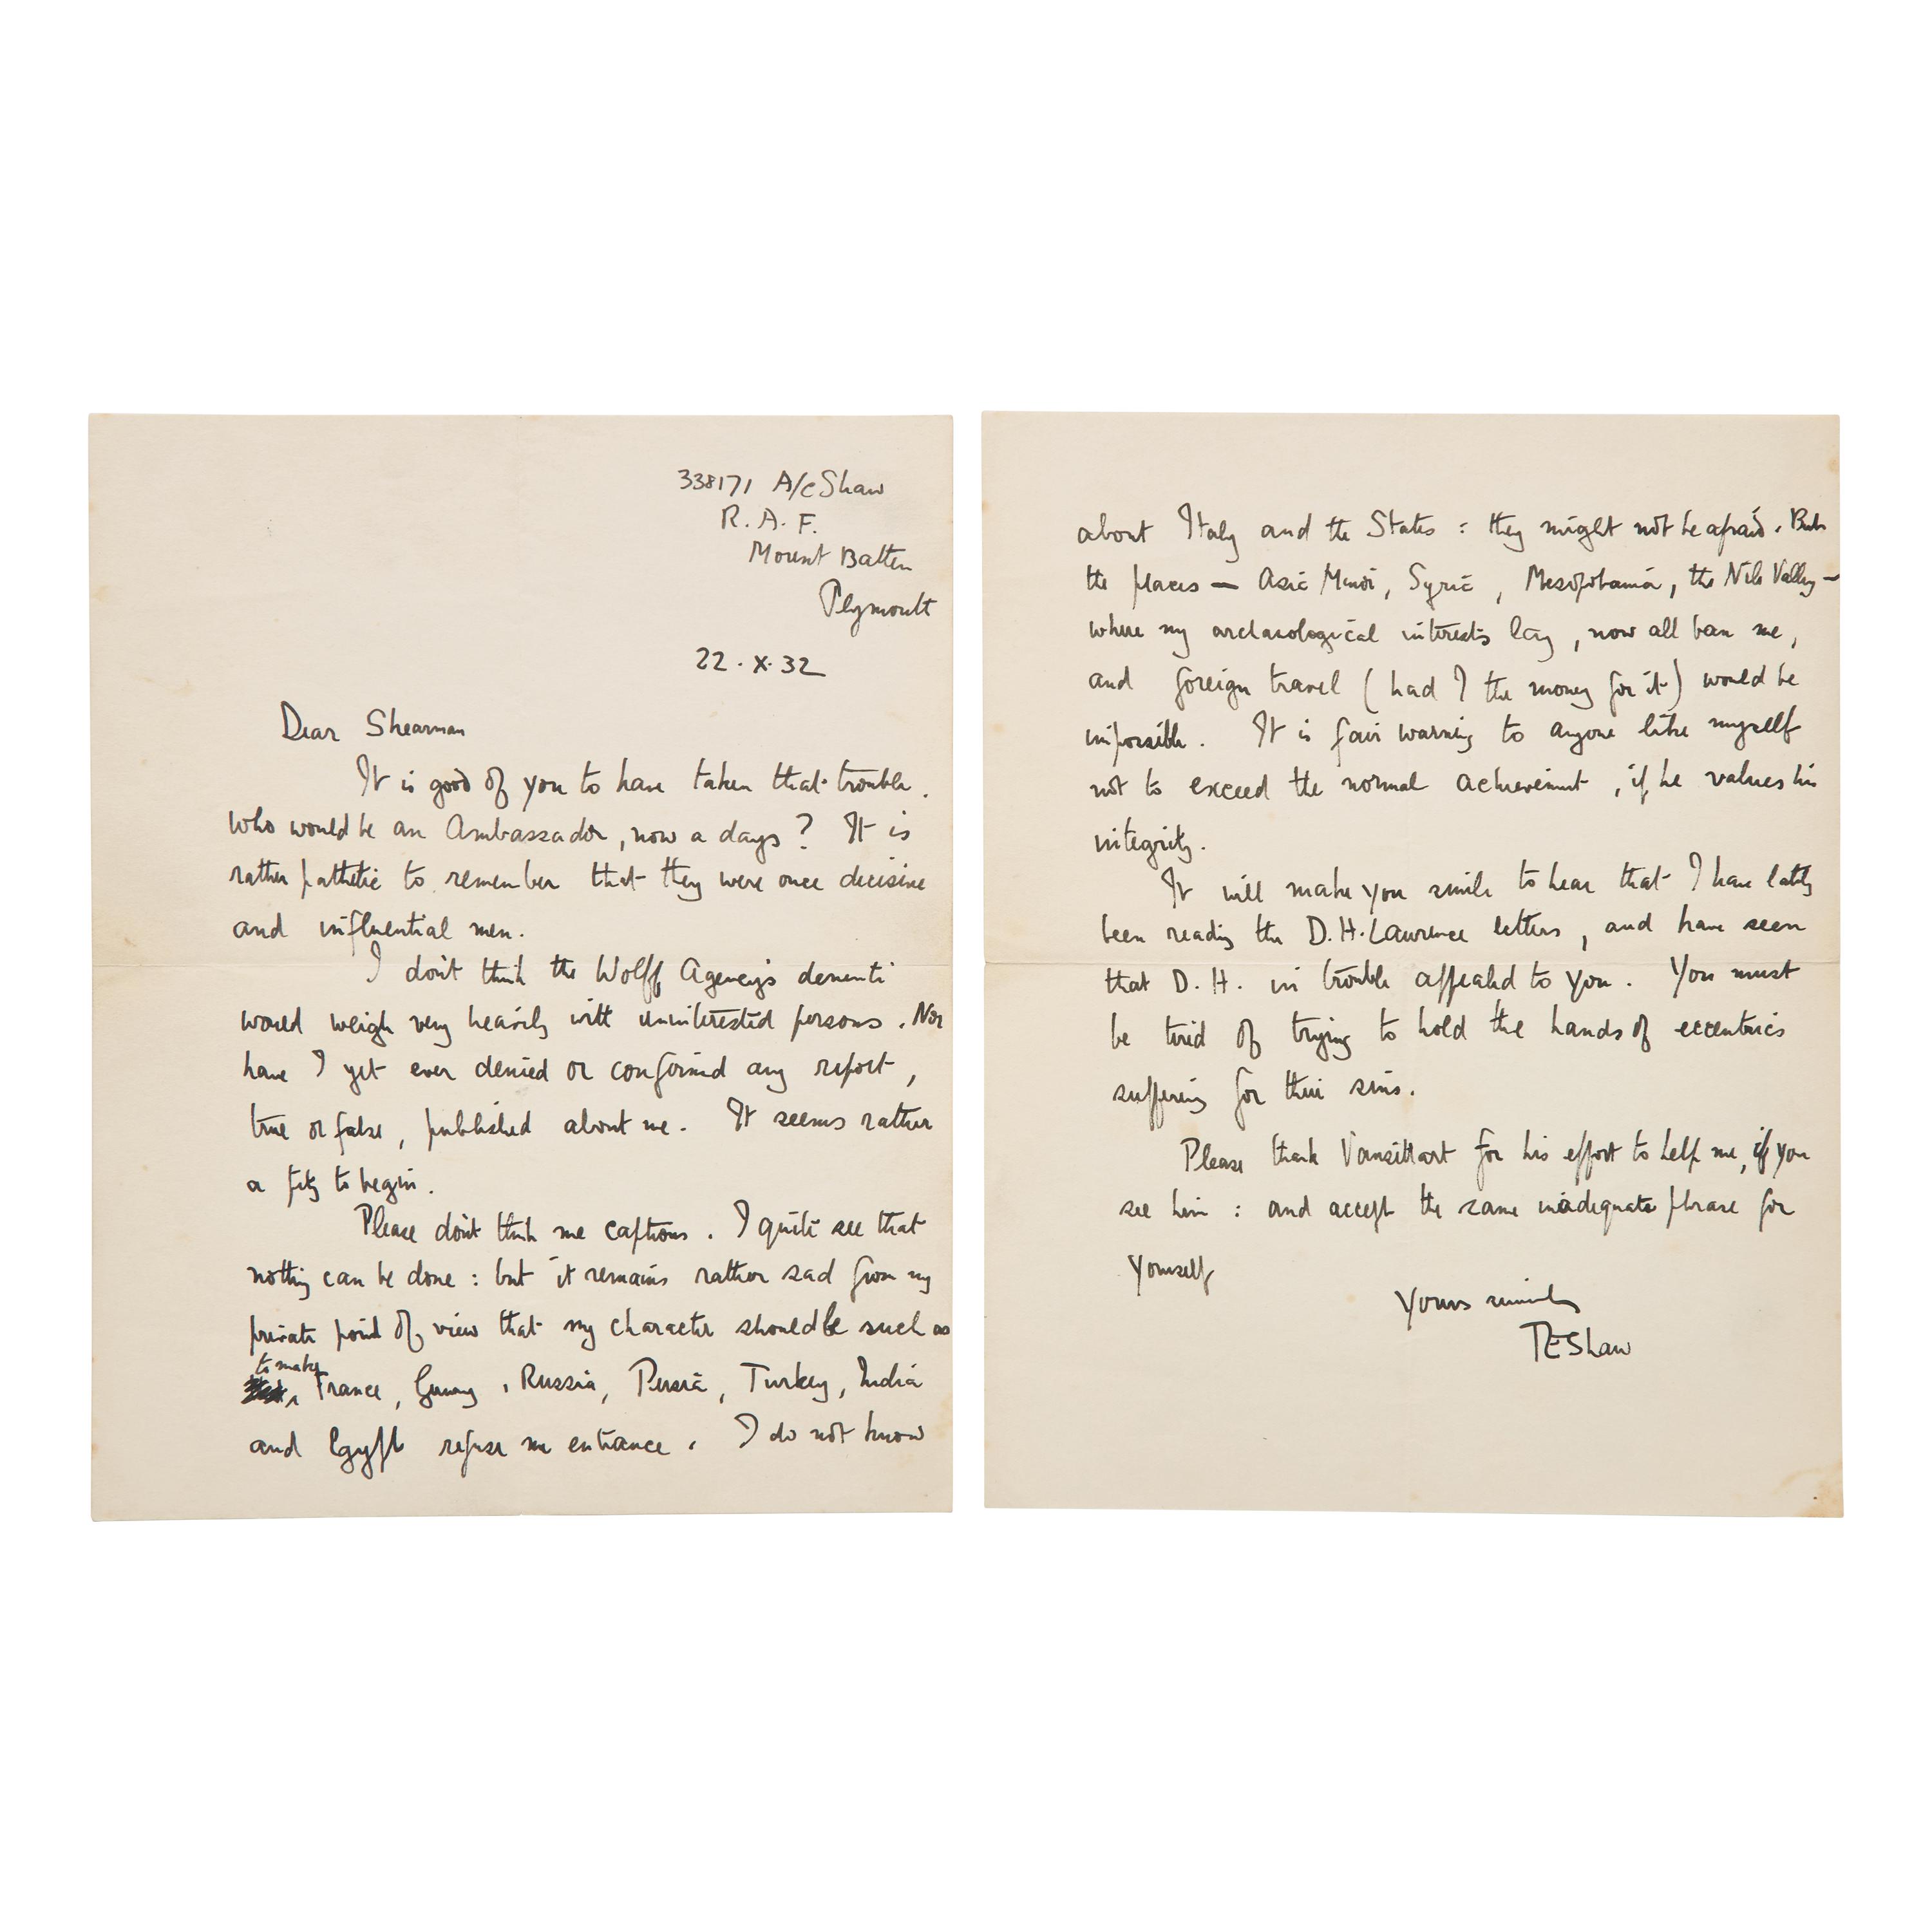 338171 A/c Shaw
R.A.F.
Mount Batten
Plymouth
22.X.32
Dear Shearman
It is good of you to have taken that trouble.
Who would be an Ambassador, now a days? It is
rather pathetic to remember that they were once decisive
and influential men.
I don't think the Wolff Agency's dementi
would weigh very heavily with uninterested persons. Nor
have I yet ever denied or confirmed any report,
true or false, published about me. It seems rather
a pity to begin.
Please don't think me captious. I quite see that
nothing can be done: but it remains rather sad from my
private point of view that my character should be such as
to make
France, Germany, Russia, Persia, Turkey, India
and Egypt refuse me entrance. I do not know
about Italy and the States: they might not be afraid. But
the places — Asia Minor, Syria, Mesopotamia, the Nile Valley —
where my archaeological interests lay, now all ban me,
and foreign travel (had I the money for it) would be
impossible. It is fair warning to anyone like myself
not to exceed the normal achievement, if he values his
integrity.
It will make you smile to hear that I have lately
been reading the D.H. Lawrence letters, and have seen
that D.H. in trouble appealed to you. You must
be tired of trying to hold the hands of eccentrics
suffering for their sins.
Please thank Vansittart for his effort to help me, if you
see him: and accept the same inadequate phrase for
yourself
Yours sincerely
TEShaw